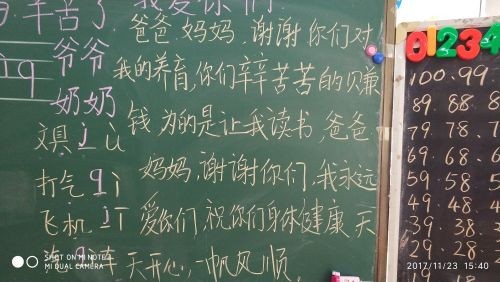 辛苦了 我爱你们
爷爷
奶奶
文具 j ù
打气 q ì
飞机 j ī
汽 q 车
爸爸 妈妈,谢谢你们对
我的养育,你们辛辛苦苦的赚
钱 为的是让我读书,爸爸
妈妈,谢谢你们,我永远
爱你们,祝你们身体健康,天
天开心,一帆风顺。
01234
100.99
89.88.8
79.78.7
69.68.6
59.58.5
49.48.4
39.38.3
29.28
SHOT ON MI NOTE 2
MI DUAL CAMERA
2017/11/23 15:40